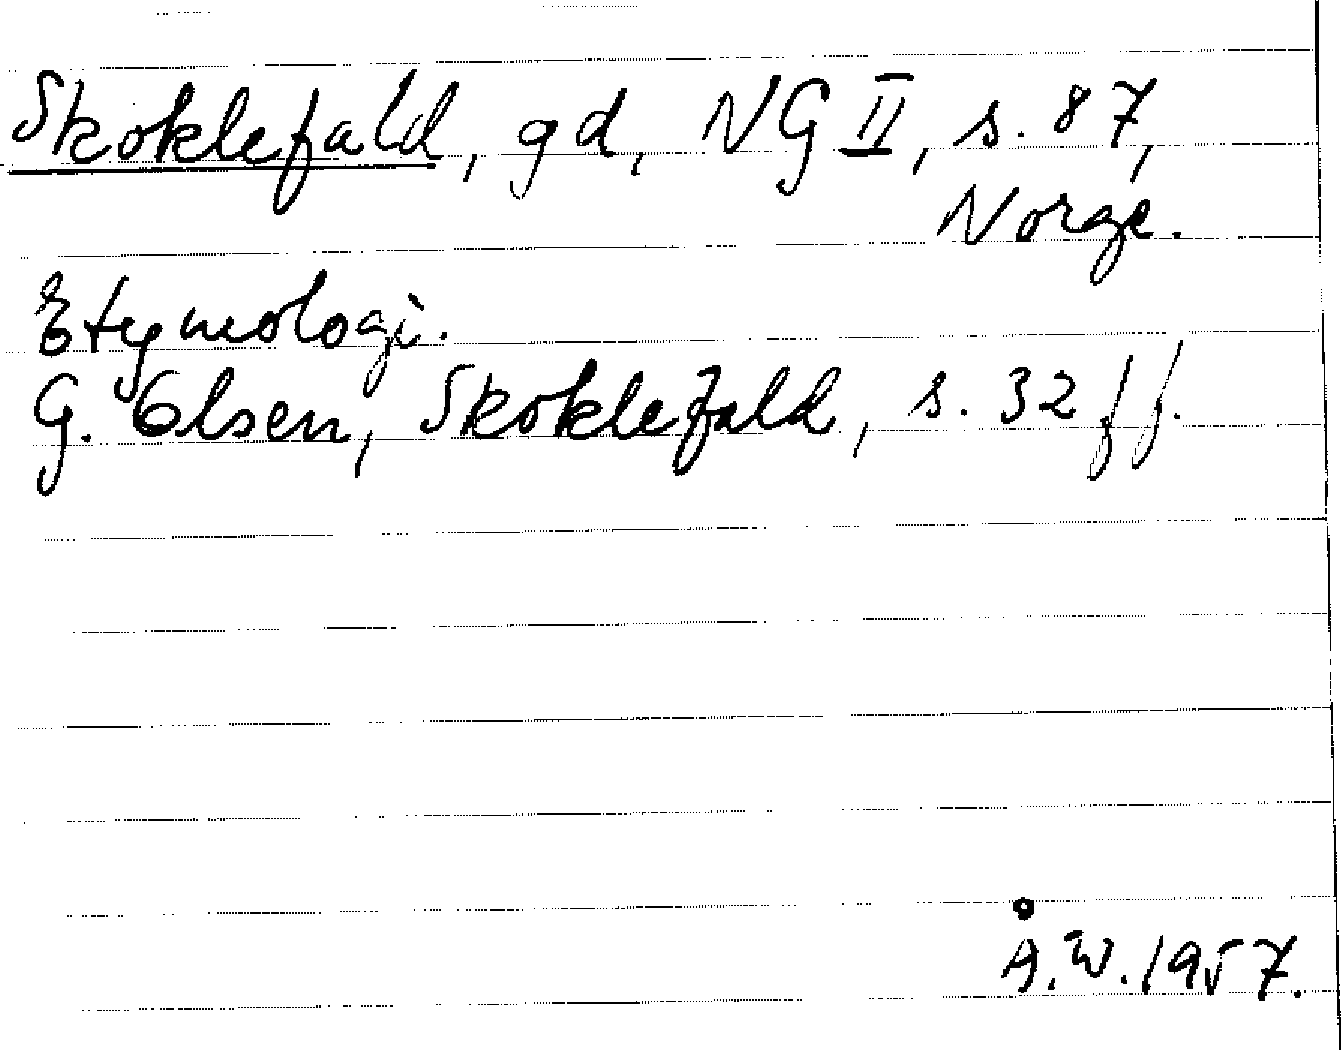 Skoklefald, gd, NG II, s. 87,
Norge.
Etymologi.
G. Olsen, Skoklefald, s. 32 ff.
Å.W. 1957.